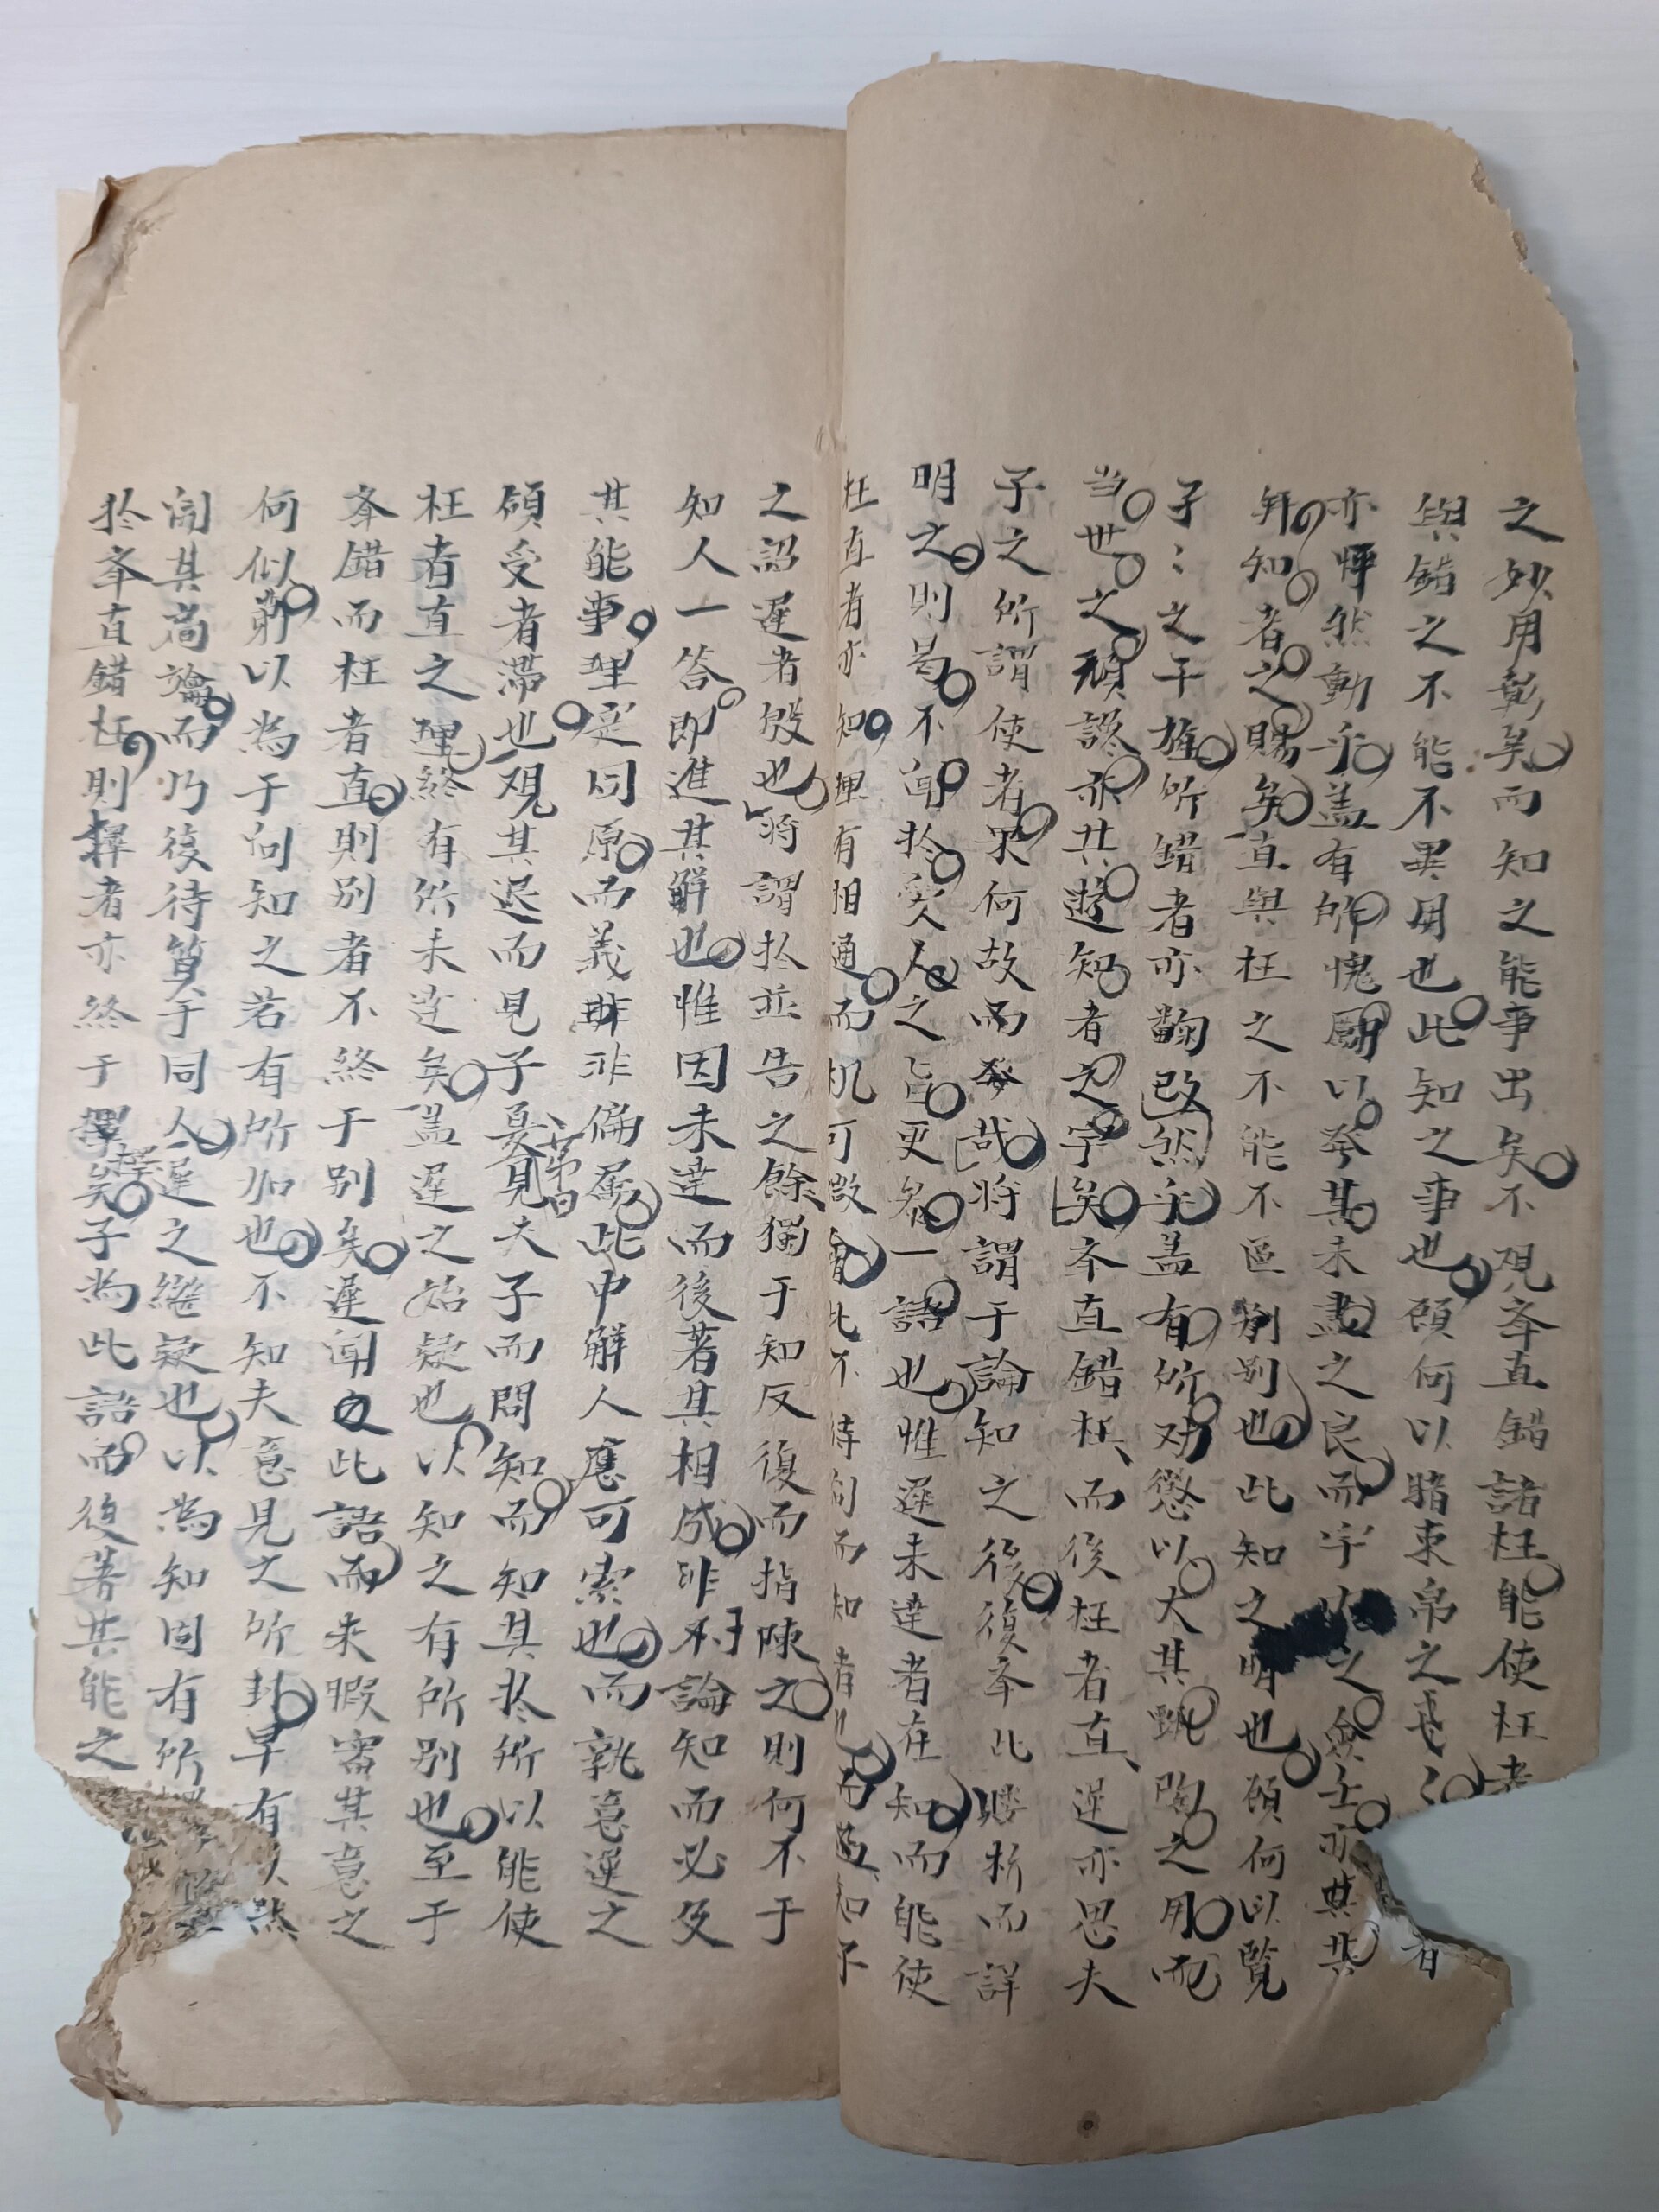 之妙用彰矣而知之能事出矣不观夲直錯諸枉能使枉者
與錯之不能不異用也此知之事也顾何以賭束帛之戋〻者
亦怦然動乎盖有所愧勵以夲其未盡之良而宇之亦其共
知者之賜矣直與枉之不能不區别也此知之明也顾何以覧
孑〻之干旄所錯者亦翻改然乎盖有所劝懲以大其甄陶之用而
当世之頑諺亦共遊知者之宇矣夲直錯枉而後枉者直遅亦思夫
子之所謂使者果何故而發哉将謂于論知之後復夲此赘析而詳
明之則曷不闻扵愛人之旨更多一語也惟遅未達者在知而能使
枉直者亦知理有相通而机可微會此不待问而知者也而益知不
之詔遅者殷也将謂扵並告之餘獨于知反復而指陳之則何不于
知人一答即進其解也惟因未達而後著其相成非不論知而必及
其能事理定同原而義非偏属此中解人應可索也而孰意遅之
顾受者滞也观其退而見子夏第曰見夫子而問知而知其扵所以能使
枉者直之理終有所未达矣盖遅之始疑也以知之有所别也至于
夲錯而枉者直則别者不終于别矣遅闻此語而未暇審其意之
何似薪以為于问知之若有所加也不知夫意見之所封早有以然
闻其崗論而乃後待質于同人遅之繼疑也以為知固有所擇
扵夲直錯枉則擇者亦終于擇矣子為此語而後著其能之